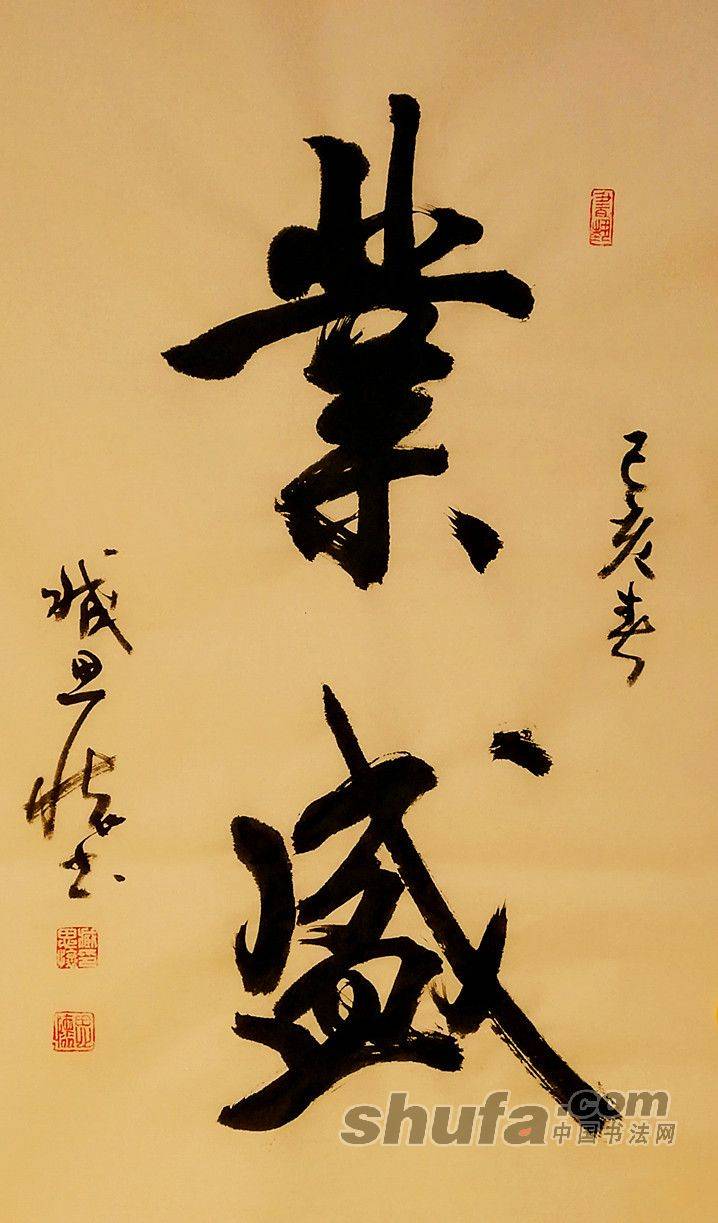 業盛
己亥春
臧思懷书
shufa.com
中国书法网